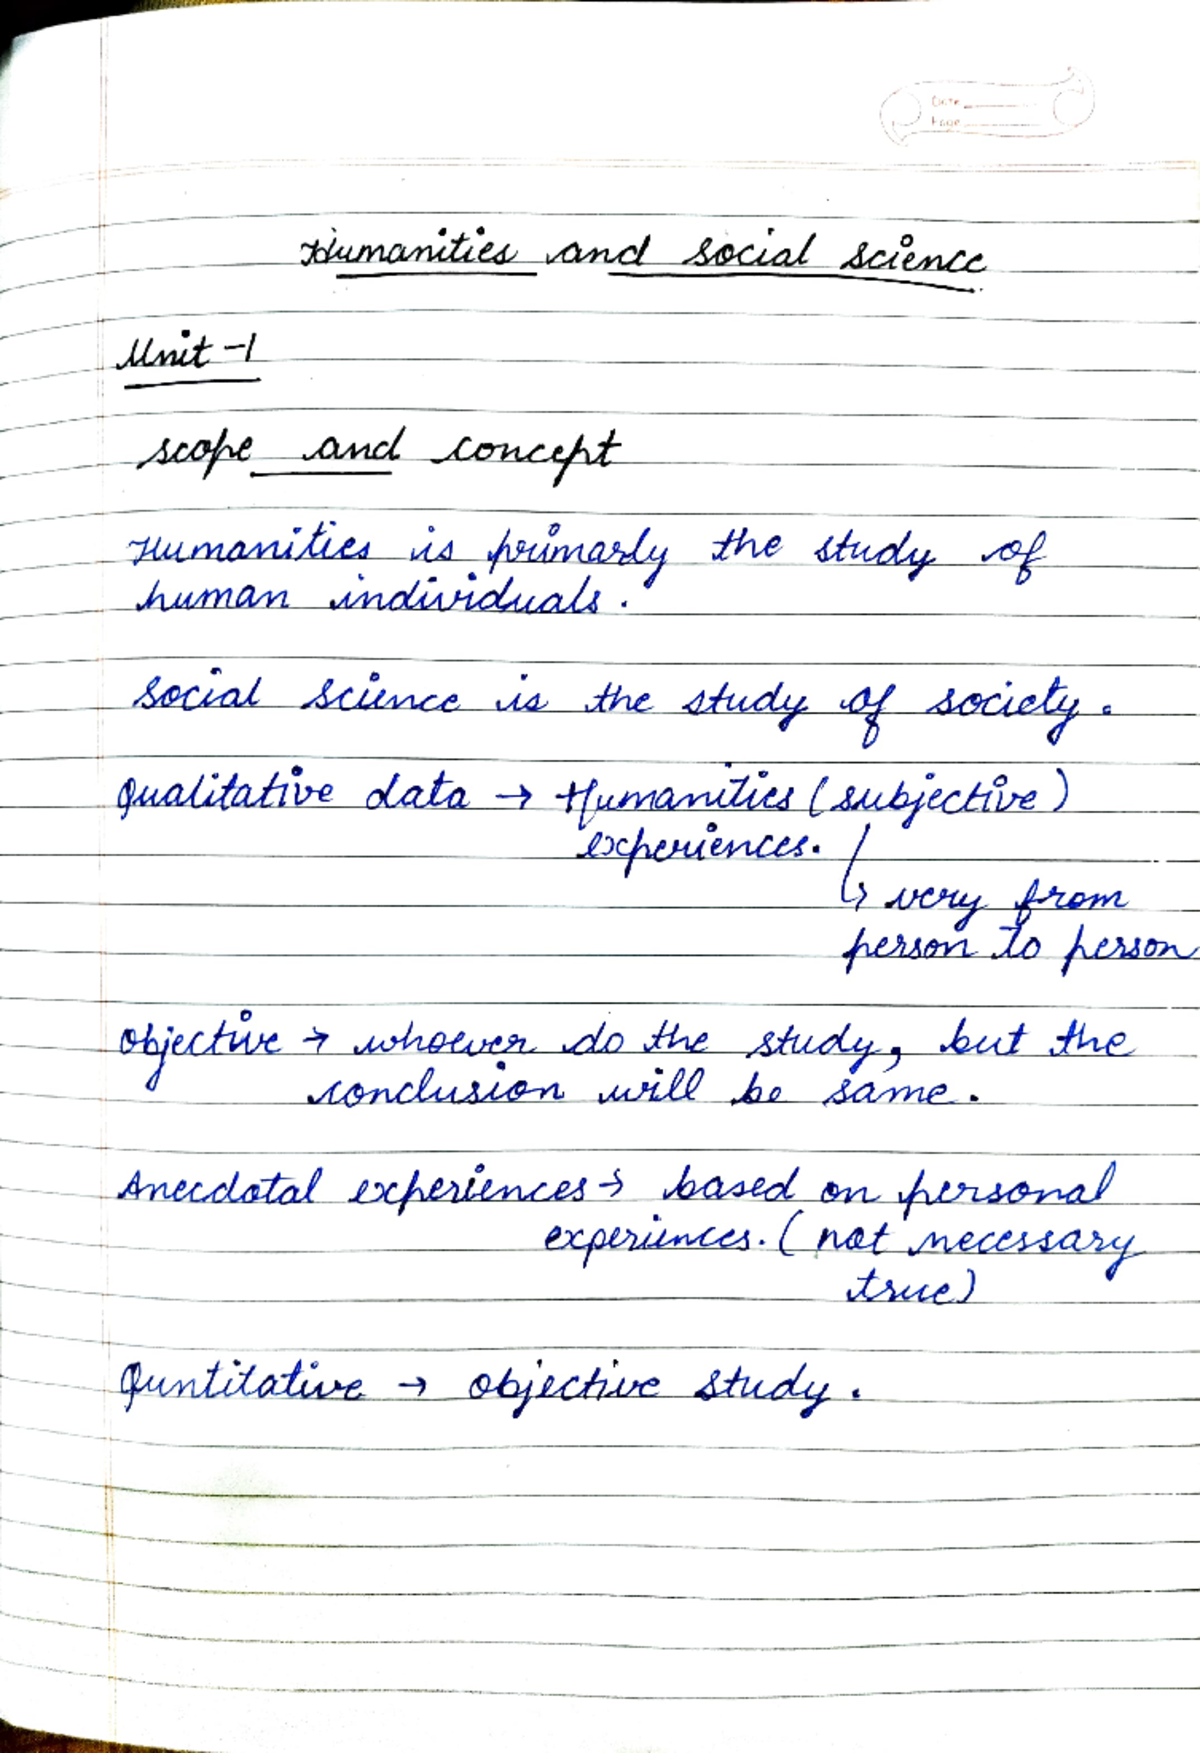 Date
Page
Humanities and social science
Unit -1
scope and concept
Humanities is primarly the study of
human individuals.
Social science is the study of society.
Qualitative data → Humanities (subjective)
experiences.
↳ very from
person to person
objective → whoever do the study, but the
conclusion will be same.
Anecdotal experiences → based on personal
experiences. (not necessary
true)
Quntitative → objective study.